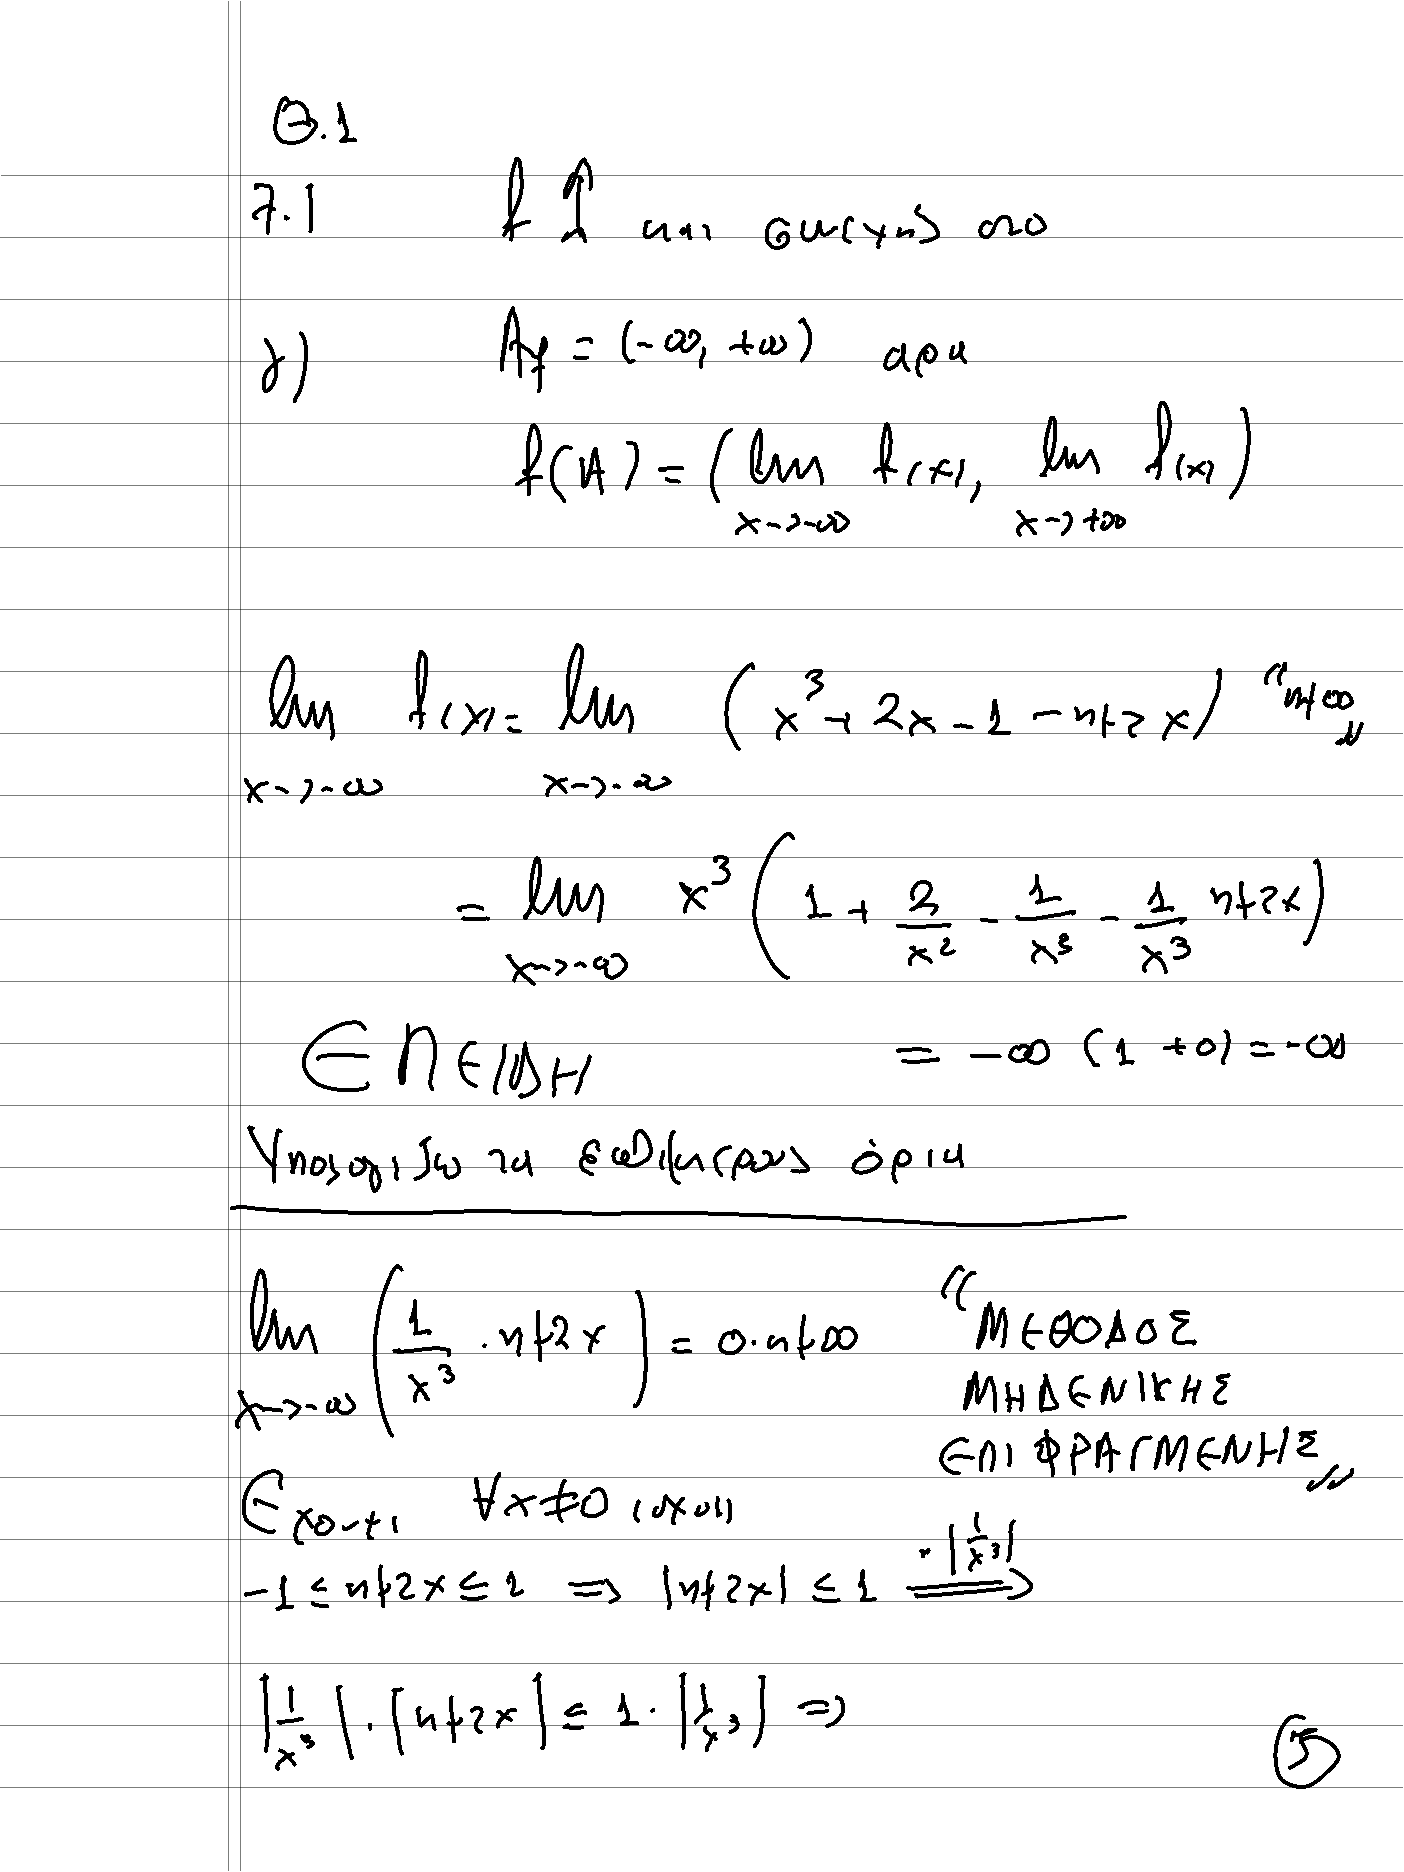 Θ.1
7.1 f ↑ και συνεχής στο
γ) A_f = (-∞, +∞) άρα
f(A) = ( lim_{x→-∞} f(x), lim_{x→+∞} f(x) )
lim_{x→-∞} f(x) = lim_{x→-∞} ( x³ + 2x - 1 - ημ2x ) "ημ∞"
= lim_{x→-∞} x³ ( 1 + 2/x² - 1/x³ - 1/x³ ημ2x )
= -∞ (1 + 0) = -∞
ΕΠΕΙΔΗ
Υπολογίζω τα όρια
lim_{x→-∞} ( 1/x³ · ημ2x ) = 0·ημ∞ "ΜΕΘΟΔΟΣ
ΜΗΔΕΝΙΚΗΣ
ΕΠΙ ΦΡΑΓΜΕΝΗΣ"
∀x≠0 ισχύει
-1 ≤ ημ2x ≤ 1 ⇒ |ημ2x| ≤ 1 ⇒^{·|1/x³|}
|1/x³| · |ημ2x| ≤ 1 · |1/x³| ⇒
5